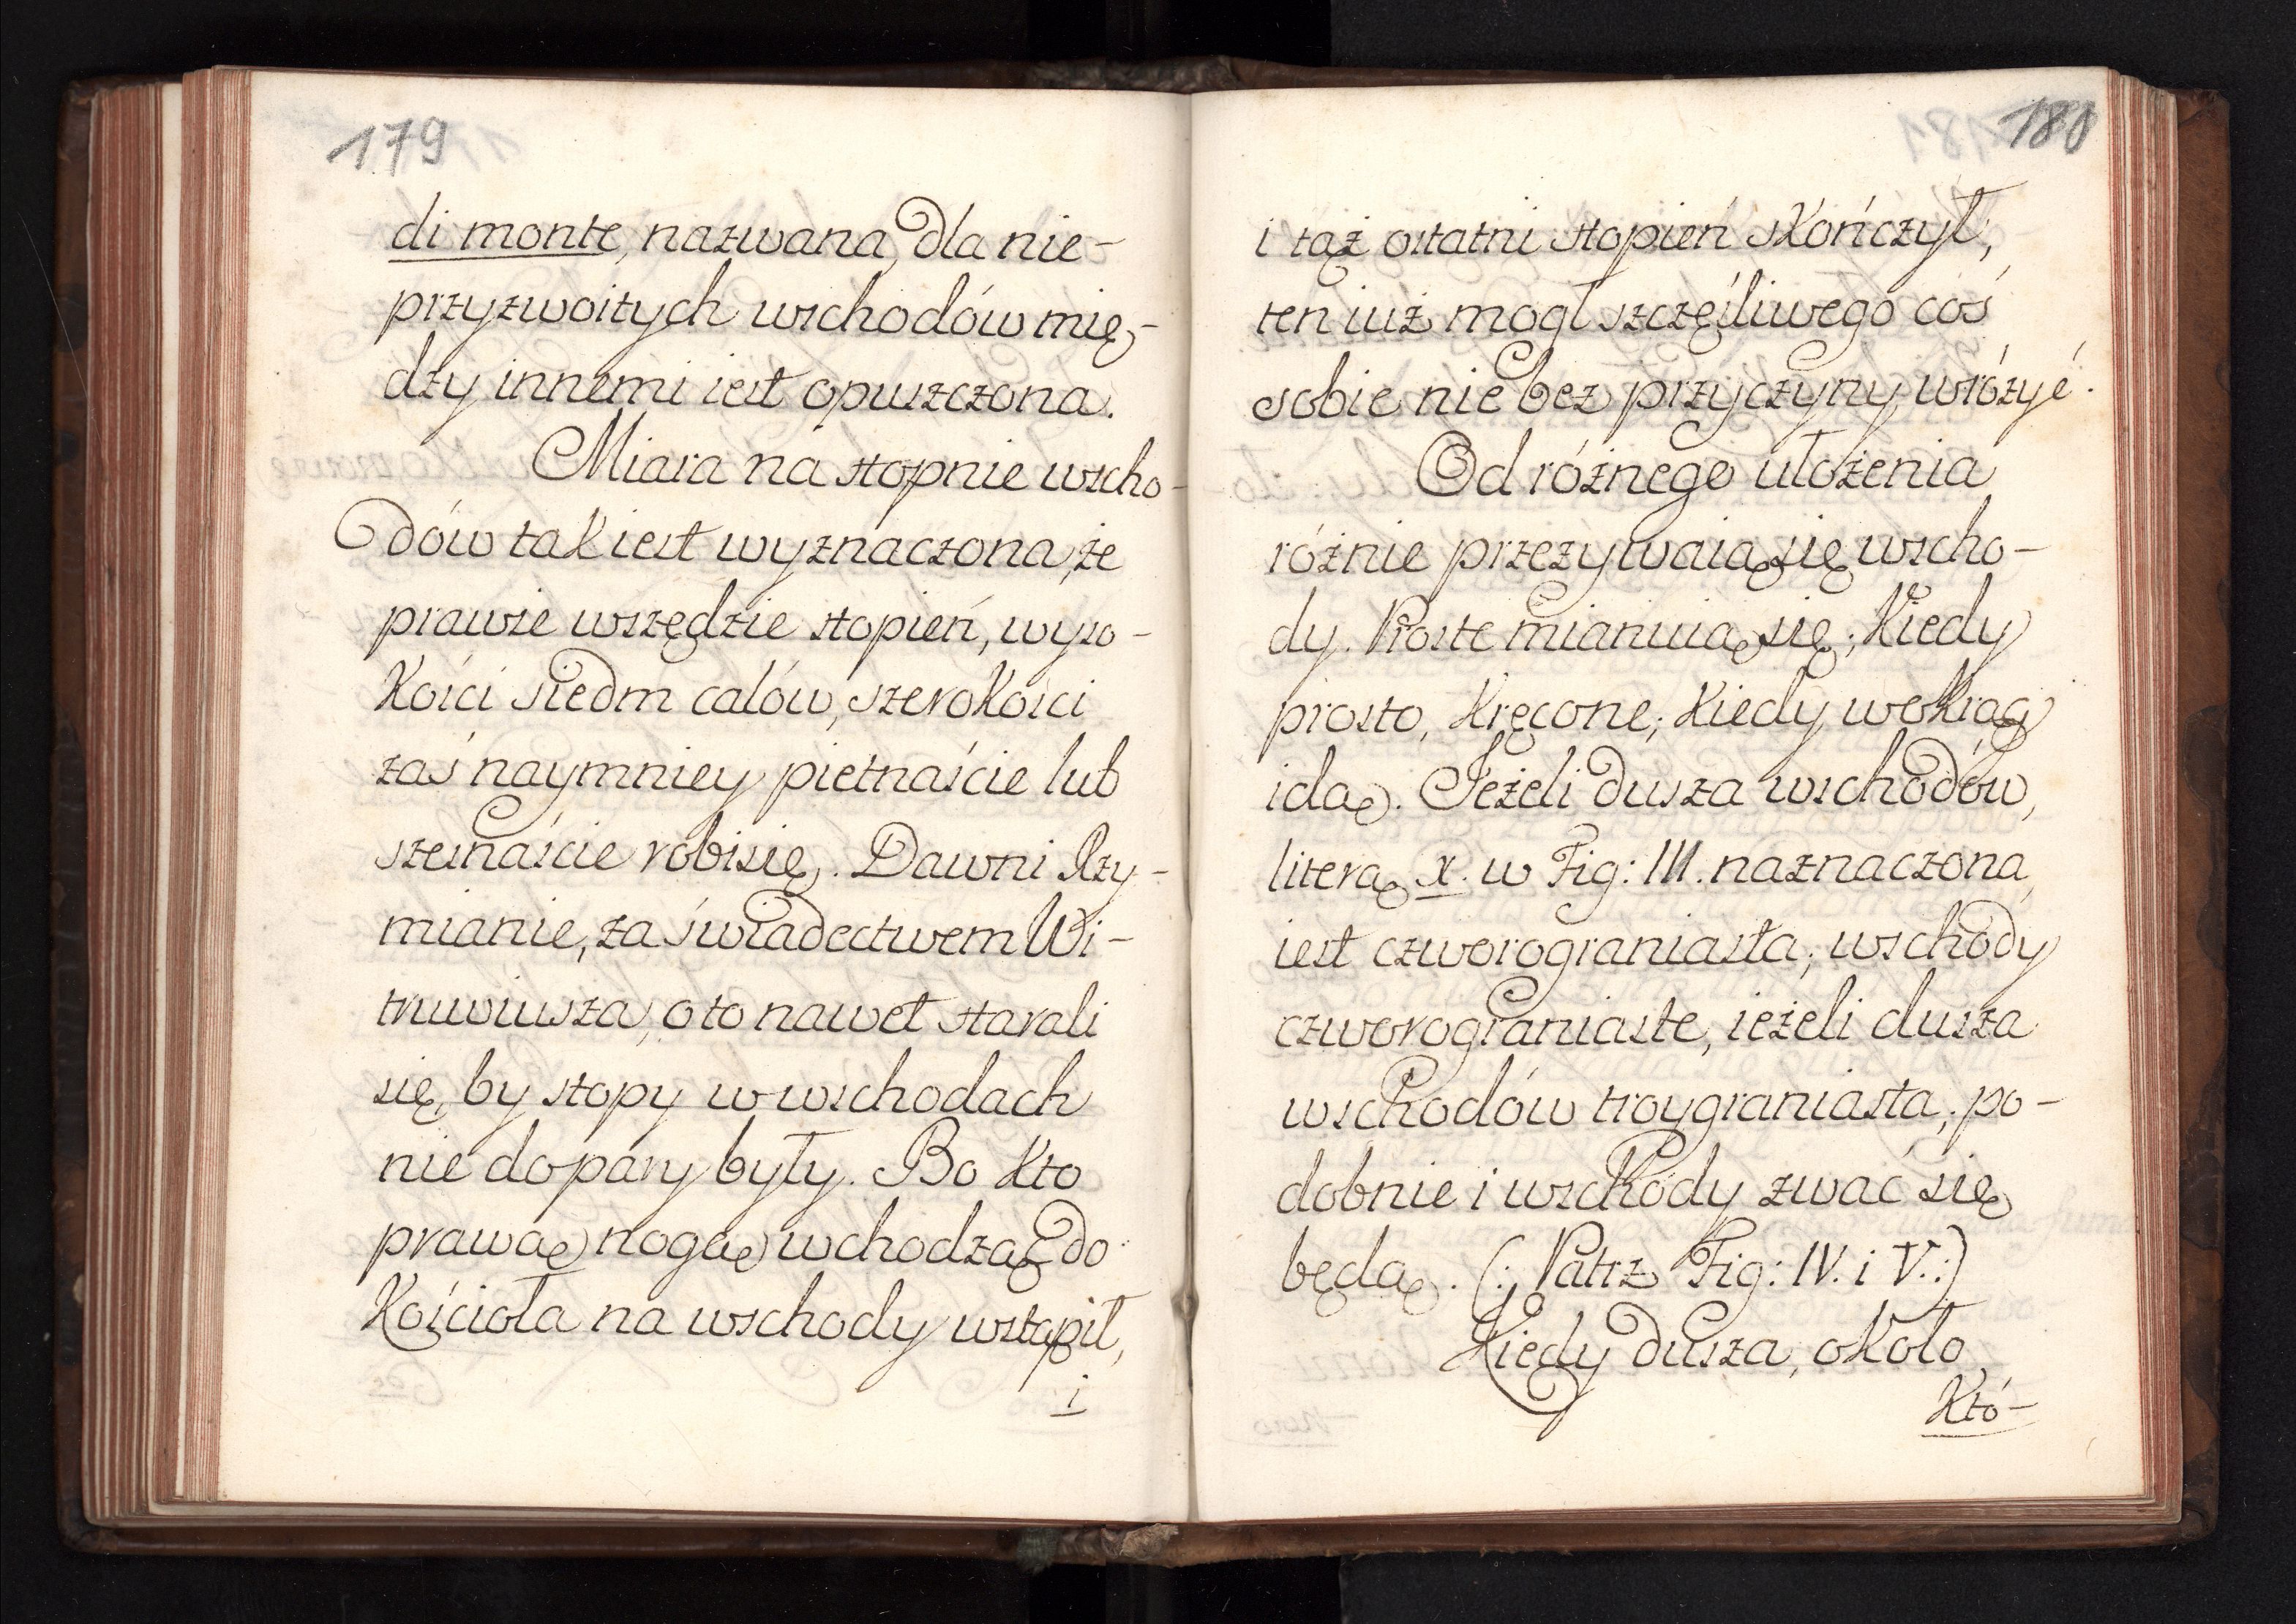 179
di monte, nazwana, dla nie-
przyzwoitych wschodów mię-
dzy innemi iest opuszczona.
Miara na stopnie wscho-
dów tak iest wyznaczona, że
prawie wszędzie stopień, wyso-
kości siedm calów, szerokości
zaś naymniey pietnaście lub
szesnaście robi się. Dawni Rzy-
mianie, za świadectwem Wi-
truwiusza, o to nawet starali
się, by stopy w wschodach
nie do pary były. Bo kto
prawą nogą wchodząc do
Kościoła na wschody wstąpił,
i
180
i tąż ostatni stopień skończył,
ten iuż mogł szczęśliwego coś
sobie nie bez przyczyny wróżyć.
Od różnego ułożenia
różnie przezywaią się wscho-
dy. Proste mianuią się; kiedy
prosto, Kręcone; kiedy wokrąg
idą. Jeżeli dusza wschodów,
literą x. w Fig: III. naznaczona,
iest czworograniasta; wschody
czworograniaste, ieżeli dusza
wschodów troygraniasta; po-
dobnie i wschody zwać się
będą. (: Patrz Fig: IV. i V.:)
Kiedy dusza, około
Któ-